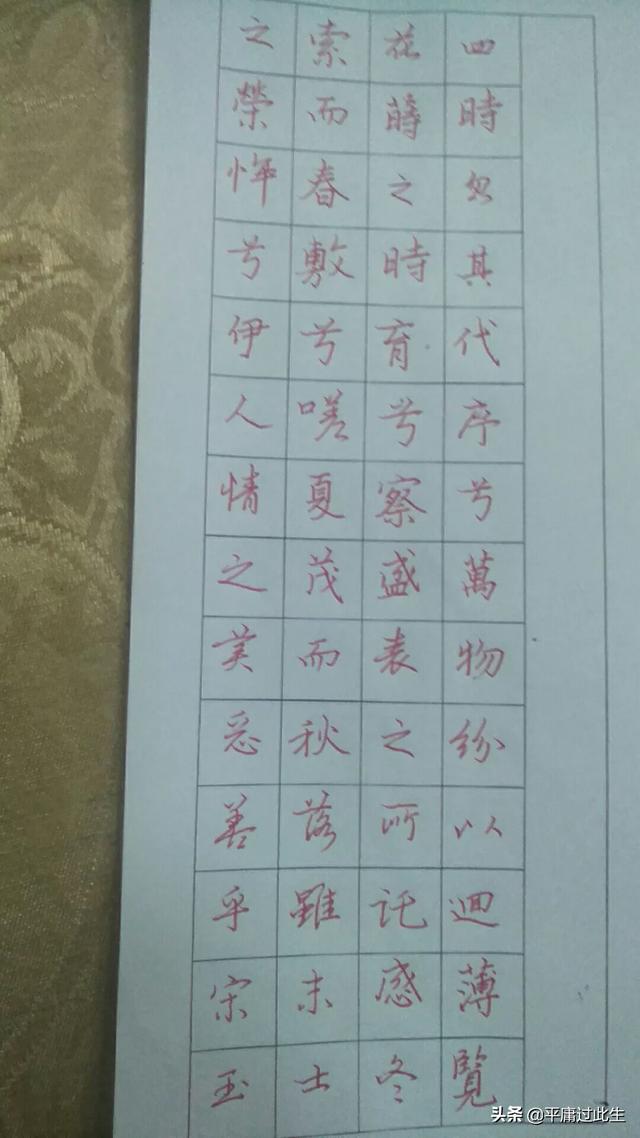 四時忽其代序兮萬物紛以迴薄覽
花蒔之時育兮察盛衰之所託感冬
索而春敷兮嗟夏茂而秋落雖末士
之榮悴兮伊人情之美惡善乎宋玉
头条 @平庸过此生